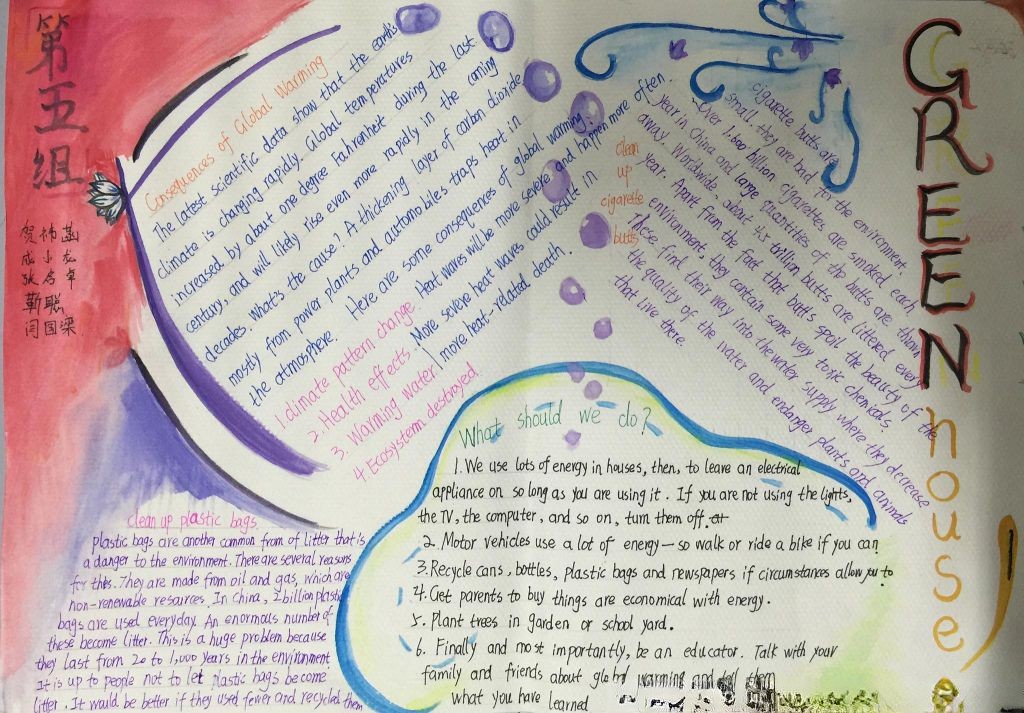 第五组
贺祎
成小龙
张名卓
靳聪
闫国梁
GREEN house
Consequences of Global Warming
The latest scientific data show that the earth's
climate is changing rapidly. Global temperatures
increased by about one degree Fahrenheit during the last
century, and will likely rise even more rapidly in the coming
decades. What's the cause? A thickening layer of carbon dioxide
mostly from power plants and automobiles traps heat in
the atmosphere. Here are some consequences of global warming.
1. climate pattern change. Heat waves will be more severe and happen more often
2. Health effects. More severe heat waves could result in
3. Warming water more heat-related death.
4. Ecosysterm destroyed.
clean
up
cigarette
butts
cigarette butts are
small, they are bad for the environment.
Over 1,600 billion cigarettes are smoked each
year in China and large quantities of the butts are thrown
away. Worldwide about 4.5 trillion butts are littered every
year. Apart from the fact that butts spoil the beauty of the
environment, they contain some very toxic chemicals.
These find their way into the water supply where they decrease
the quality of the water and endanger plants and animals
that live there.
What should we do?
1. We use lots of energy in houses, then, to leave an electrical
appliance on so long as you are using it. If you are not using the lights,
the TV, the computer, and so on, turn them off.
2. Motor vehicles use a lot of energy — so walk or ride a bike if you can
3. Recycle cans, bottles, plastic bags and newspapers if circumstances allow you to
4. Get parents to buy things are economical with energy.
5. Plant trees in garden or school yard.
6. Finally and most importantly, be an educator. Talk with your
family and friends about global warming and
what you have learned
clean up plastic bags
plastic bags are another common from of litter that is
a danger to the environment. There are several reasons
for this. They are made from oil and gas, which are
non-renewable resources. In China, 2 billion plastic
bags are used everyday. An enormous number of
these become litter. This is a huge problem because
they last from 20 to 1,000 years in the environment
It is up to people not to let plastic bags become
litter. It would be better if they used fewer and recycled them